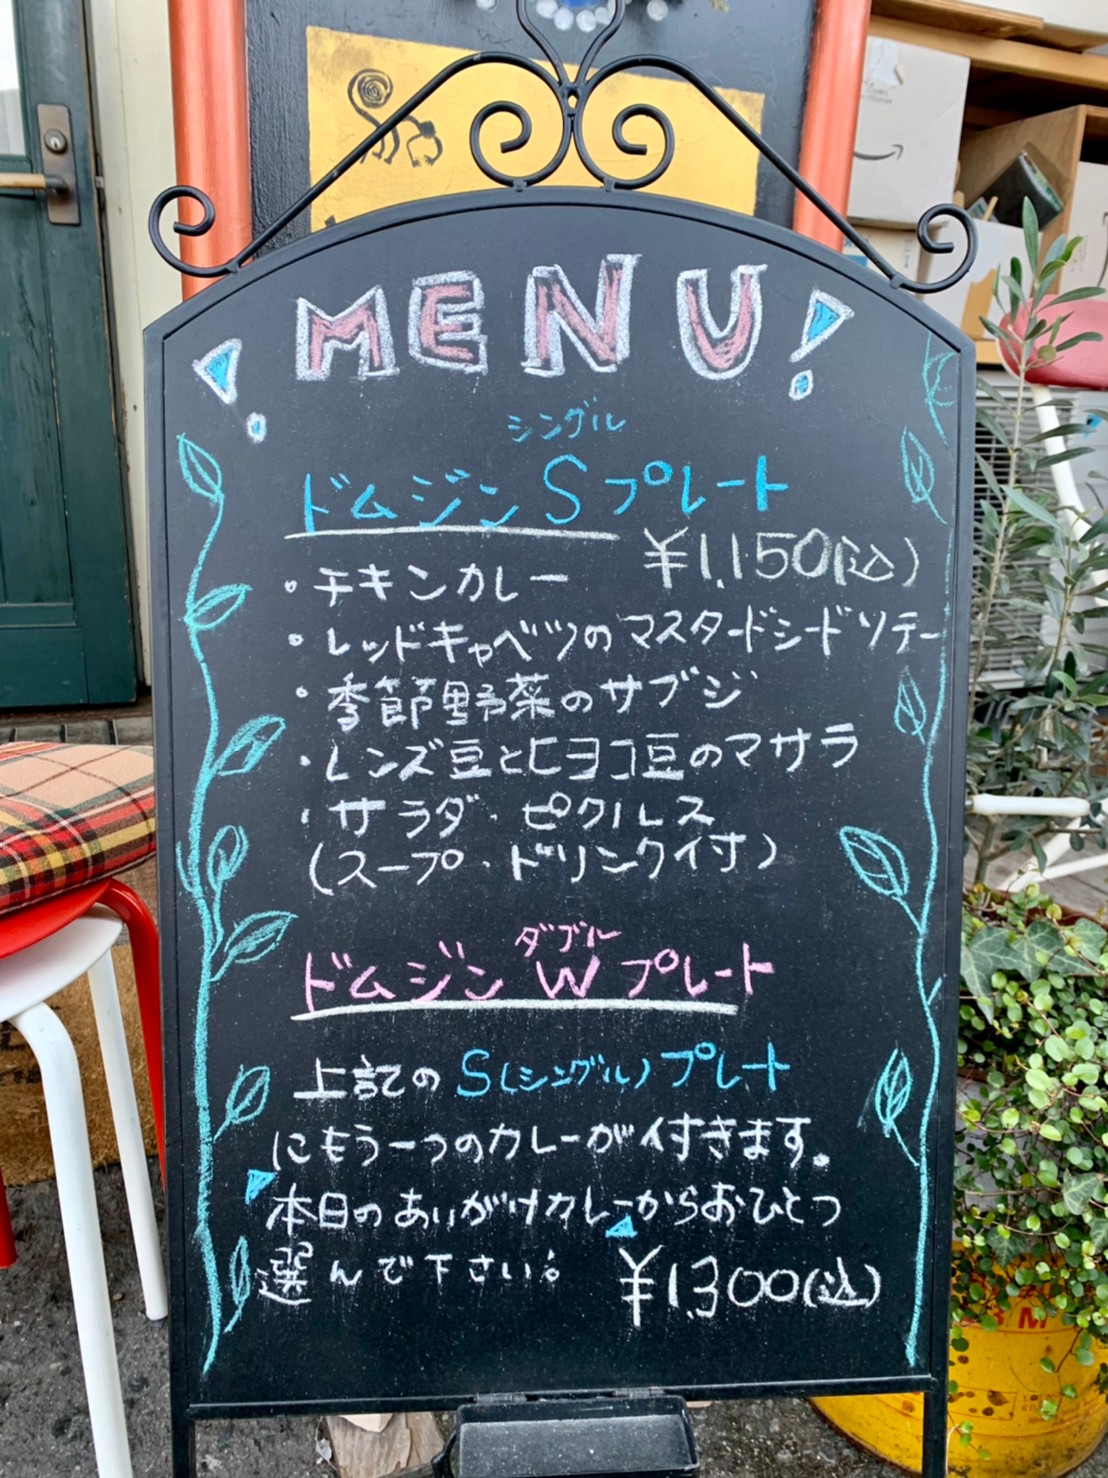 MENU!
シングル
ドムジンSプレート
¥1,150(込)
・チキンカレー
・レッドキャベツのマスタードシードソテー
・季節野菜のサブジ
・レンズ豆とヒヨコ豆のマサラ
・サラダ・ピクルス
(スープ・ドリンク付)
ダブル
ドムジンWプレート
上記のS(シングル)プレート
にもう一つのカレーが付きます。
本日のあいがけカレーからおひとつ
選んで下さい。
¥1,300(込)